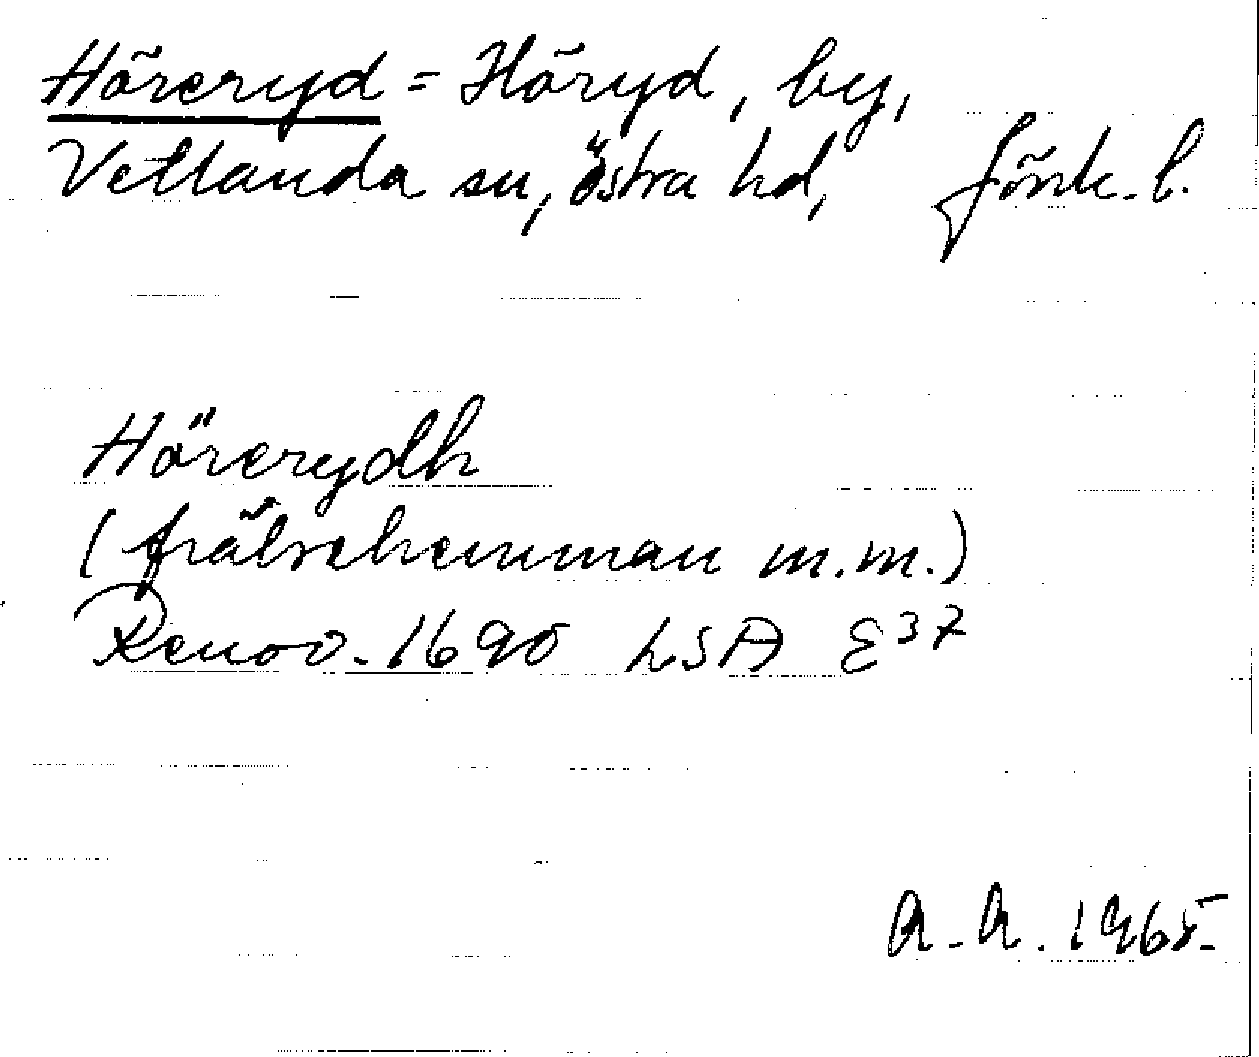 Höreryd = Höryd, by,
Vetlanda sn, östra hd, Jönk. l.
Hörerydh
(frälsehemman m.m.)
Renov. 1690 LSA E 37
A. A. 1965